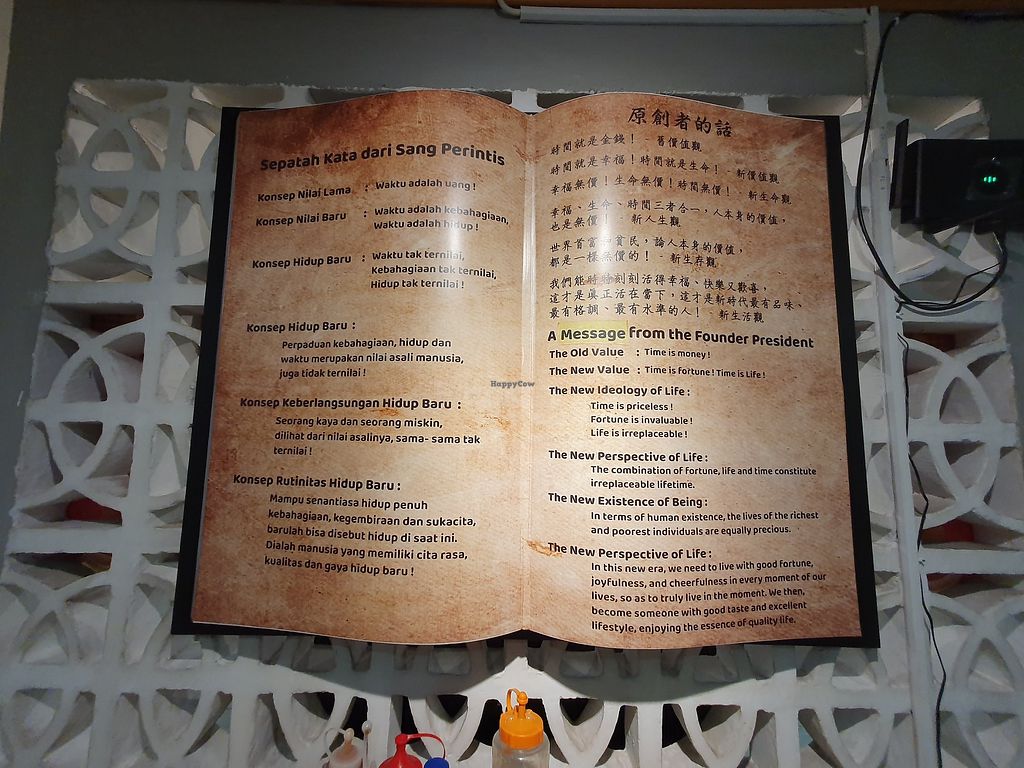 Sepatah Kata dari Sang Perintis
Konsep Nilai Lama : Waktu adalah uang !
Konsep Nilai Baru : Waktu adalah kebahagiaan,
Waktu adalah hidup !
Konsep Hidup Baru : Waktu tak ternilai,
Kebahagiaan tak ternilai,
Hidup tak ternilai !
Konsep Hidup Baru :
Perpaduan kebahagiaan, hidup dan
waktu merupakan nilai asali manusia,
juga tidak ternilai !
Konsep Keberlangsungan Hidup Baru :
Seorang kaya dan seorang miskin,
dilihat dari nilai asalinya, sama- sama tak
ternilai !
Konsep Rutinitas Hidup Baru :
Mampu senantiasa hidup penuh
kebahagiaan, kegembiraan dan sukacita,
barulah bisa disebut hidup di saat ini.
Dialah manusia yang memiliki cita rasa,
kualitas dan gaya hidup baru !
原創者的話
時間就是金錢！ - 舊價值觀
時間就是幸福！時間就是生命！ - 新價值觀
幸福無價！生命無價！時間無價！ - 新生命觀
幸福、生命、時間三者合一，人本身的價值，
也是無價！ - 新人生觀
世界首富和貧民，論人本身的價值，
都是一樣無價的！ - 新生存觀
我們能時時刻刻活得幸福、快樂又歡喜，
這才是真正活在當下，這才是新時代最有品味、
最有格調、最有水準的人！ - 新生活觀
A Message from the Founder President
The Old Value : Time is money !
The New Value : Time is fortune ! Time is Life !
The New Ideology of Life :
Time is priceless !
Fortune is invaluable !
Life is irreplaceable !
The New Perspective of Life :
The combination of fortune, life and time constitute
irreplaceable lifetime.
The New Existence of Being :
In terms of human existence, the lives of the richest
and poorest individuals are equally precious.
The New Perspective of Life :
In this new era, we need to live with good fortune,
joyfulness, and cheerfulness in every moment of our
lives, so as to truly live in the moment. We then,
become someone with good taste and excellent
lifestyle, enjoying the essence of quality life.
HappyCow